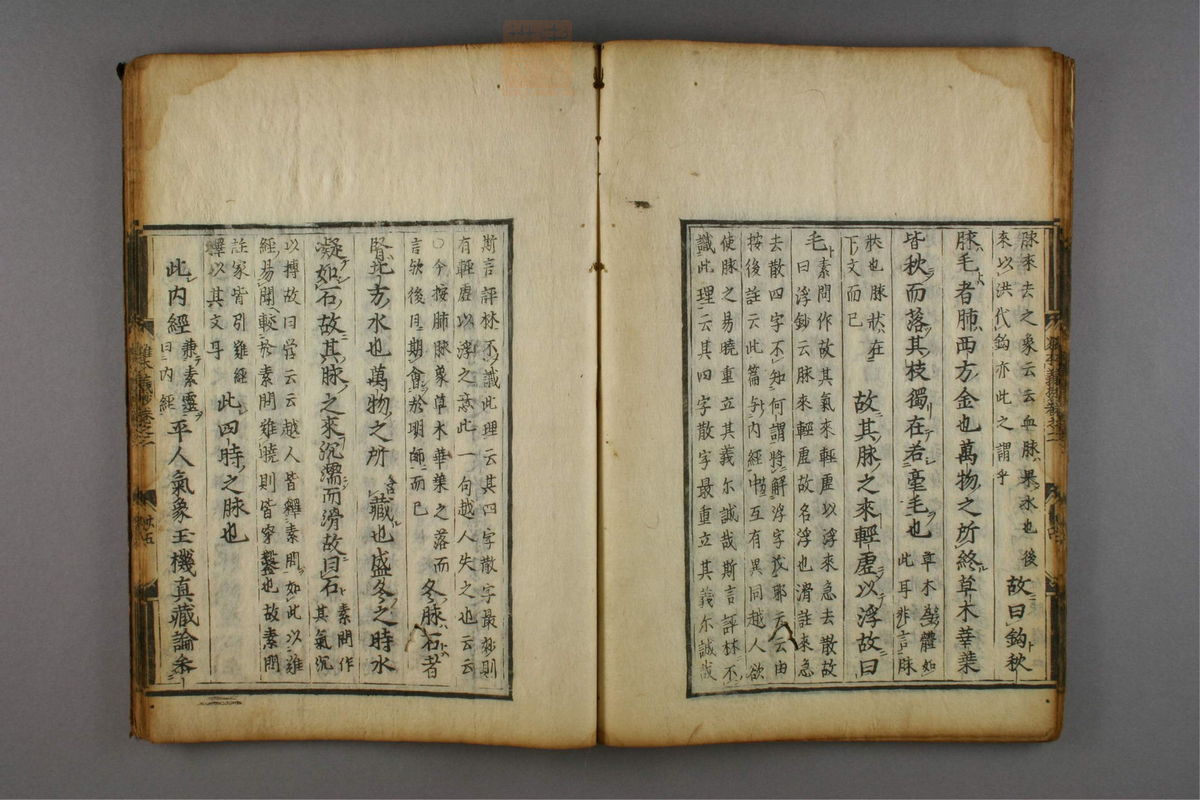 脉來去之象云云血脉暴水也後
來以洪代鈎亦此之謂乎
故曰鈎秋
脉毛者肺西方金也萬物之所終草木華葉
皆秋而落其枝獨在若毫毛也
草木體如
此耳非言脉
狀也脉狀在
下文而已
故其脉之來輕虛以浮故曰
毛
素問作故其氣來輕虛以浮來急去散故
曰浮鈔云脉來輕虛故名浮也滑註來急
去散四字不知何謂將解浮字茂耶云云由
按後註云此篇与内經中互有異同越人欲
使脉之易曉重立其義尔誠哉斯言評林不
識此理云其四字散字最重立其義尓誠哉
斯言評林不識此理云其四字散字最妙則
有輕虛以浮之意此一句越人失之也云云
〇今按肺脉象草木華葉之落而
言欤後日期會於明師而已
冬脉石者
腎北方水也萬物之所
藏也盛冬之時水
凝如石故其脉之來沉濡而滑故曰石
素問作
其氣沉
以搏故曰營云云越人皆繹素問如此以難
經易聞較於素問難曉則皆穿鑿也故素問
註家皆引難經
釋以其文耳
此四時之脉也
此内經
兼素靈
曰内經
平人氣象玉機真藏論参